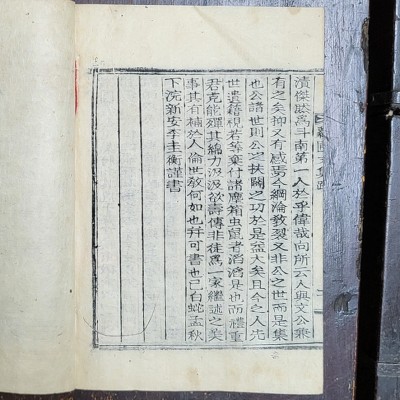 漬傑然爲斗南第一人於乎偉哉向所云人與文公兼
有之矣抑又有感焉今綱淪敎裂又非公之世而是集
也公諸世則公之扶闢之功於是益大矣且今之人先
世遺籍視若等棄付諸塵箱虫鼠者滔滔是也而禮重
君克能殫其綿力汲汲欲壽傳非徒爲一家繼述之矣
事其有補於人倫世敎何如也幷可書也已白蛇孟秋
下浣新安李圭衡謹書